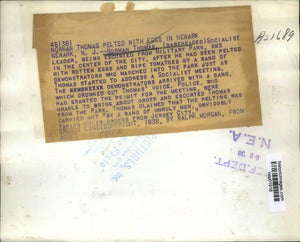 481361
NORMAN THOMAS PELTED WITH EGGS IN NEWARK
NEWARK, N. J.--NORMAN THOMAS (BAREHEADED) SOCIALIST
LEADER, BEING ESCORTED FROM MILITARY PARK, IN
THE CENTER OF THE CITY, AFTER HE HAD BEEN PELTED
WITH ROTTEN EGGS AND TOMATOES BY A BAND OF
DEMONSTRATORS WHO MARCHED INTO THE PARK JUST AS
THOMAS STARTED TO ADDRESS A SOCIALIST MEETING.
THE DEMONSTRATORS ARRIVED WITH A BAND,
WHICH DROWNED OUT THOMAS' VOICE. POLICE,
WHO HAD GRANTED THE PERMIT FOR THE MEETING, WERE
UNABLE TO BRING ABOUT ORDER AND ESCORTED THOMAS
FROM THE PARK. THOMAS CLAIMED THAT THE PELTING WAS
CARRIED OUT "BY A BAND OF UNRULY MEN, OBVIOUSLY
FROM JERSEY CITY."
1938, BY RALPH MORGAN, FROM
PICTURES, Inc
REF. DEPT.
N.E.A.